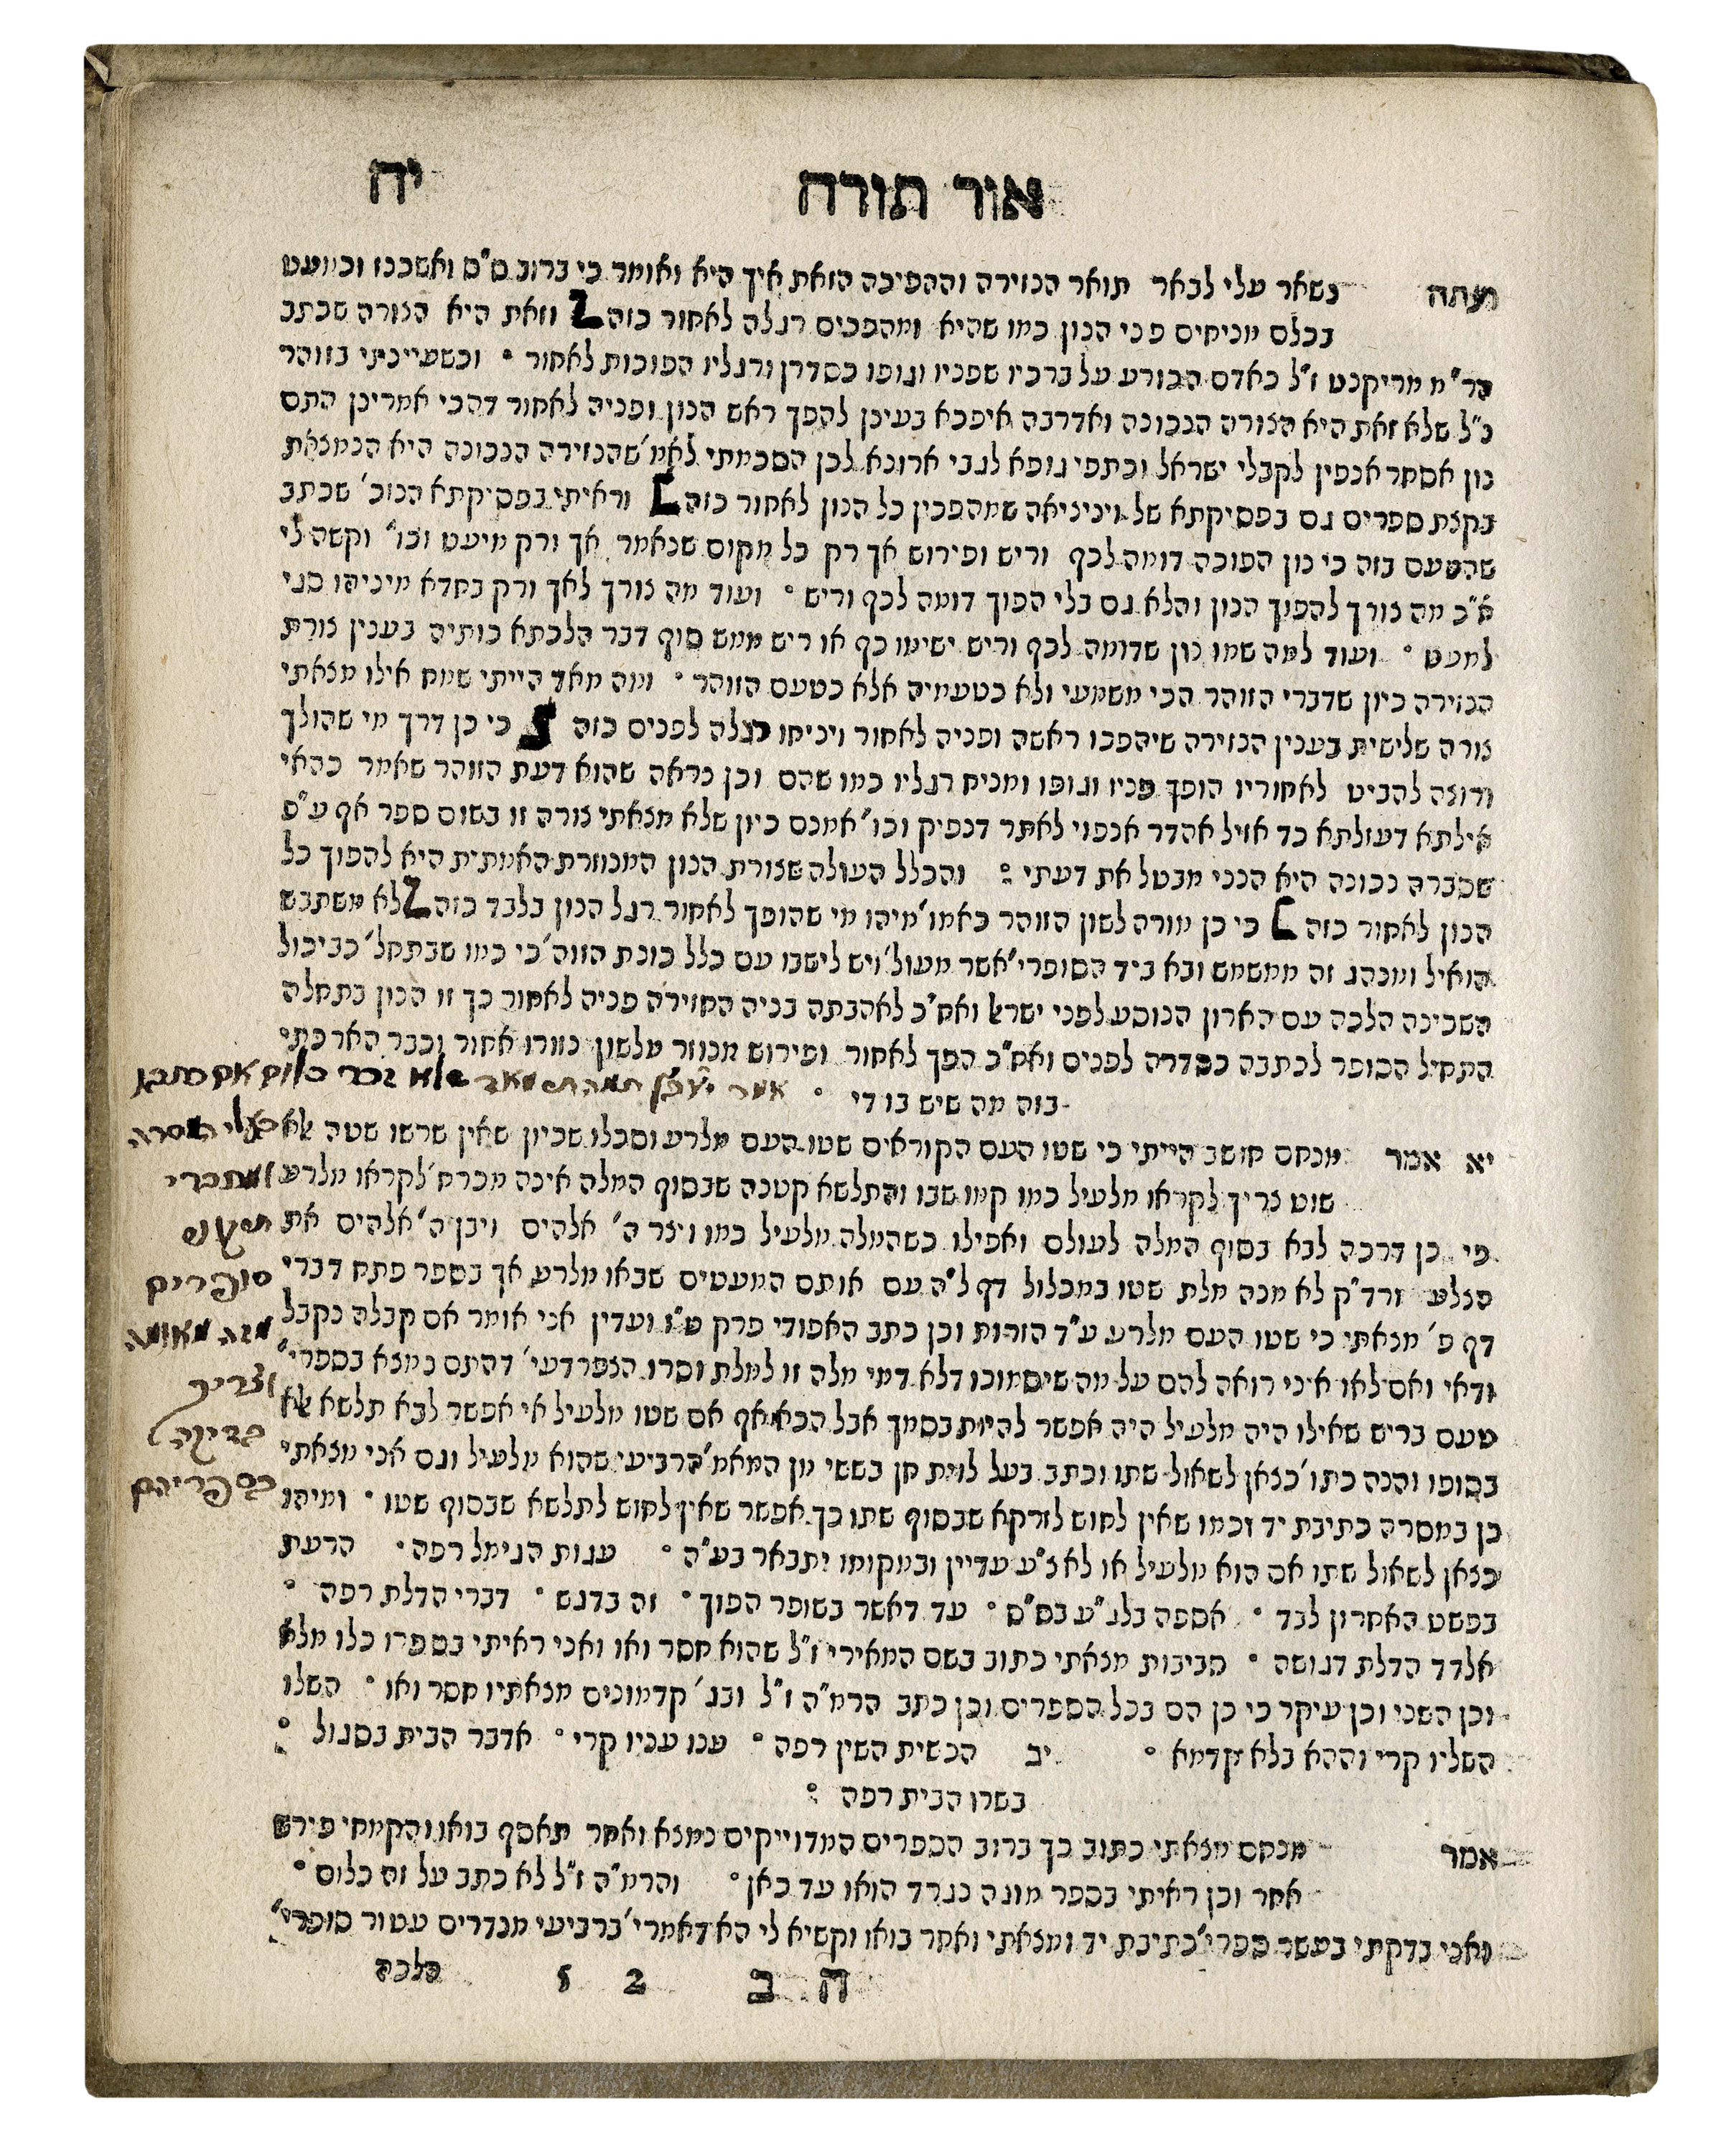 אור תורה יח
ועתה נשאר עלי לבאר תואר הנזירה וההפיכה הזאת איך היא ואומר כי ברוב ס"ס ואשכנז וכמעט
בכלם מניחים פני הנון כמו שהיא ומהפכים רגלה לאחור כזה וזאת היא הצורה שכתב
הר"מ מריקנט ז"ל כאדם הכורע על ברכיו שפניו וגופו כסדרן ורגליו הפוכות לאחור ° וכשעיינתי בזוהר
נ"ל שלא זאת היא הצורה הנכונה ואדרבה איפכא בעינן להפך ראש הנון ופניה לאחור דהכי אמרינן התם
נון אסחר אנפין לקבלי ישראל וכתפי גופא לגבי ארונא לכן הסכמתי לאמ' שהנזירה הנכונה היא הנמצאת
בקצת ספרים גם בפסיקתא של ויניציאה שמהפכין כל הנון לאחור כזה וראיתי בפסיקתא הנוכ' שכתב
שהטעם בזה כי נון הפוכה דומה לכף וריש ופירוש אך רק כל מקום שנאמר אך ורק מיעט וכו' וקשה לי
א"כ מה צורך להפוך הנון והלא גם בלי הפוך דומה לכף וריש ° ועוד מה צורך לאך ורק בחדא מינייהו סגי
למעט ° ועוד למה שמו נון שדומה לכף וריש ישימו כף או ריש ממש סוף דבר הלכתא כותיה בענין צורת
הנזירה כיון שדברי הזוהר הכי משמעי ולא כטעמיה אלא כטעם הזוהר ° ומה מאד הייתי שמח אילו מצאתי
צורה שלישית בענין הנזירה שיהפכו ראשה ופניה לאחור ויניחו רגלה לפנים כזה כי כן דרך מי שהולך
ורוצה להביט לאחוריו הופך פניו וגופו ומניח רגליו כמו שהם וכן נראה שהוא דעת הזוהר שאמר כהאי
אילתא דעזלתא כד אזיל אהדר אנפוי לאתר דנפיק וכו' אמנם כיון שלא מצאתי צורה זו בשום ספר אף ע"פ
שסברה נכונה היא הנני מבטל את דעתי : והכלל העולה שצורת הנון המנוזרת האמתית היא להפוך כל
הנון לאחור כזה כי כן מורה לשון הזוהר כאמו' מיהו מי שהופך לאחור רגל הנון בלבד כזה לא משתבש
הואיל ומנהג זה ממשמש ובא ביד הסופרי' אשר מעול' ויש לישבו עם כלל כונת הזוה' כי כמו שבתחל' כביכול
השכינה הלכה עם הארון הנוסע לפני ישרא' ואח"כ לאהבתה בניה החזירה פניה לאחור כך זו הנון בתחלה
התחיל הסופר לכתבה כסדרה לפנים ואח"כ הפך לאחור ופירוש מנוזר מלשון נזורו אחור וכבר הארכתי
בזה מה שיש בו די °
יא אמר מנחם חושב הייתי כי שטו העם הקוראים שטו העם מלרע וסכלו שכיון שאין שרשו שטה אלא
שוט צריך לקראו מלעיל כמו קמו שבו והתלשא קטנה שבסוף המלה אינה מכרח' לקראו מלרע
כי כן דרכה לבא בסוף המלה לעולם ואפילו כשהמלה מלעיל כמו ויצר ה' אלהים ויבן ה' אלהים את
הצלע ורד"ק לא מנה מלת שטו במכלול דף ל"ה עם אותם המעטים שבאו מלרע אך בספר פתח דברי
דף פ' מצאתי כי שטו העם מלרע ע"ד הזרות וכן כתב האפודי פרק ט"ו ועדין אני אומר אם קבלה נקבל
ודאי ואם לאו איני רואה להם על מה שיסמוכו דלא דמי מלה זו למלת וסרו הצפרדעי' דהתם נמצא בספרי'
טעם בריש שאילו היה מלעיל היה אפשר להיות בסמך אבל הכא אף אם שטו מלעיל אי אפשר לבא תלשא אלא
בסופו והנה כתו' כצאן לשאול שתו וכתב בעל לוית חן בששי מן המאמ' הרביעי שהוא מלעיל וגם אני מצאתי
כן במסרה כתיבת יד וכמו שאין לחוש לזרקא שבסוף שתו כך אפשר שאין לחוש לתלשא שבסוף שטו ° ומיהו
כצאן לשאול שתו אם הוא מלעיל או לא צ"ע עדיין ובמקומו יתבאר בע"ה ° ענות הגימל רפה ° הרעת
בפשט האחרון לבד ° אספה בלג"ע בס"ס ° עד דאשר בשופר הפוך ° זה בדגש ° דברי הדלת רפה °
אלדד הדלת דגושה ° סביבות מצאתי כתוב בשם המאירי ז"ל שהוא חסר ואו ואני ראיתי בספרו כלו מלא
וכן השני וכן עיקר כי כן הם בכל הספרים וכן כתב הרמ"ה ז"ל ובג' קדמונים מצאתיו חסר ואו ° השלו
השליו קרי וההא בלא קדמא ° יב הכשית השין רפה ° ענו עניו קרי ° אדבר הבית בסגול :
בשרו הבית רפה :
אמר מנחם מצאתי כתוב כך ברוב הספרים המדוייקים נמצא ואחר תאסף בואו והקמחי פירש
אחר וכן ראיתי בספר מוגה כנגד הואו עד כאן ° והרמ"ה ז"ל לא כתב על זה כלום °
ואני בדקתי בעשר ספרי' כתיבת יד ומצאתי ואחר בואו וקשיא לי הא דאמרי' ברביעי מנדרים עטור סופרי'
ה ב 2 5 הלכה
שלא זכר כלום
סופרים
וצריך
בדיקה
בספריהם